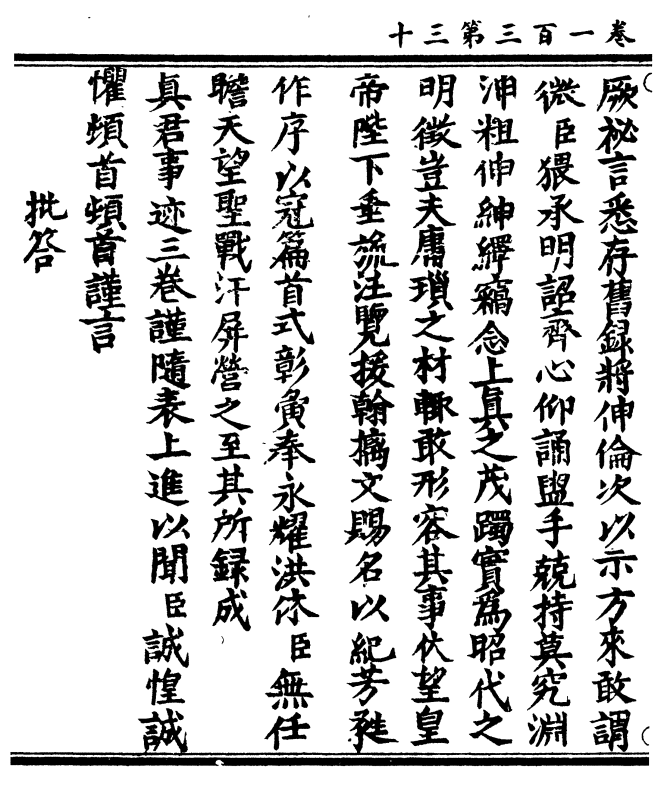 卷一百三第三十
厥祕言悉存舊録將伸倫次以示方來敢謂
微臣猥承明詔齊心仰誦盥手兢持莫究淵
沖粗伸紬繹竊念上真之茂躅實為昭代之
明徵豈夫庸瑣之材輙敢形容其事伏望皇
帝陛下垂流注覽援翰摛文賜名以紀芳蕤
作序以冠篇首式彰寅奉永耀洪休臣無任
瞻天望聖戰汗屏營之至其所録成
真君事迹三卷謹隨表上進以聞臣誠惶誠
懼頓首頓首謹言
批答